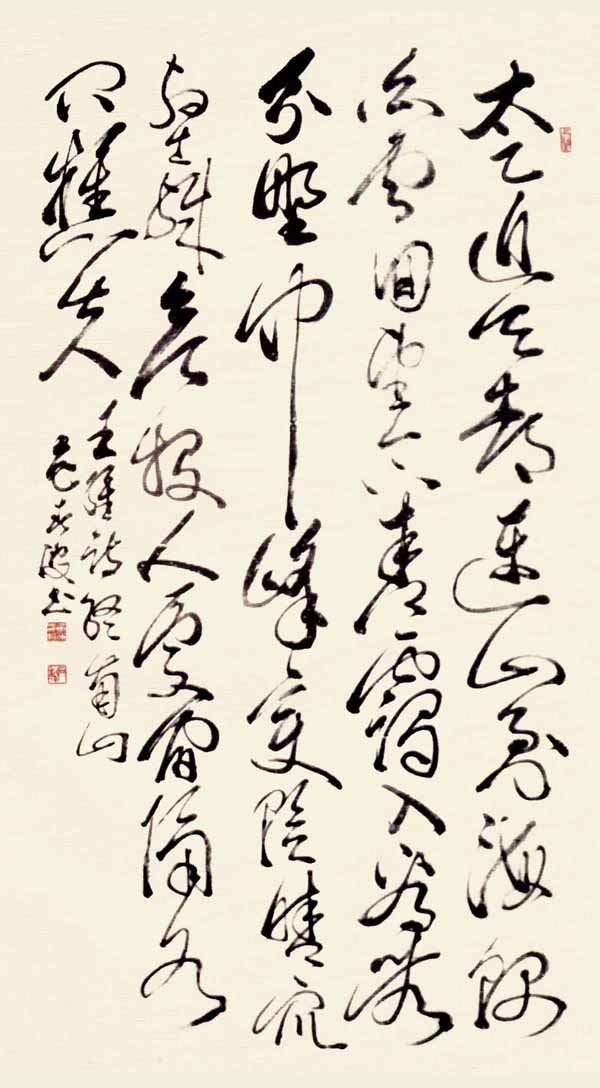 太乙近天都連山到海隅
白雲迴望合青靄入看無
分野中峰變陰晴衆
壑殊欲投人處宿隔水
問樵夫
王維詩終南山
春波书